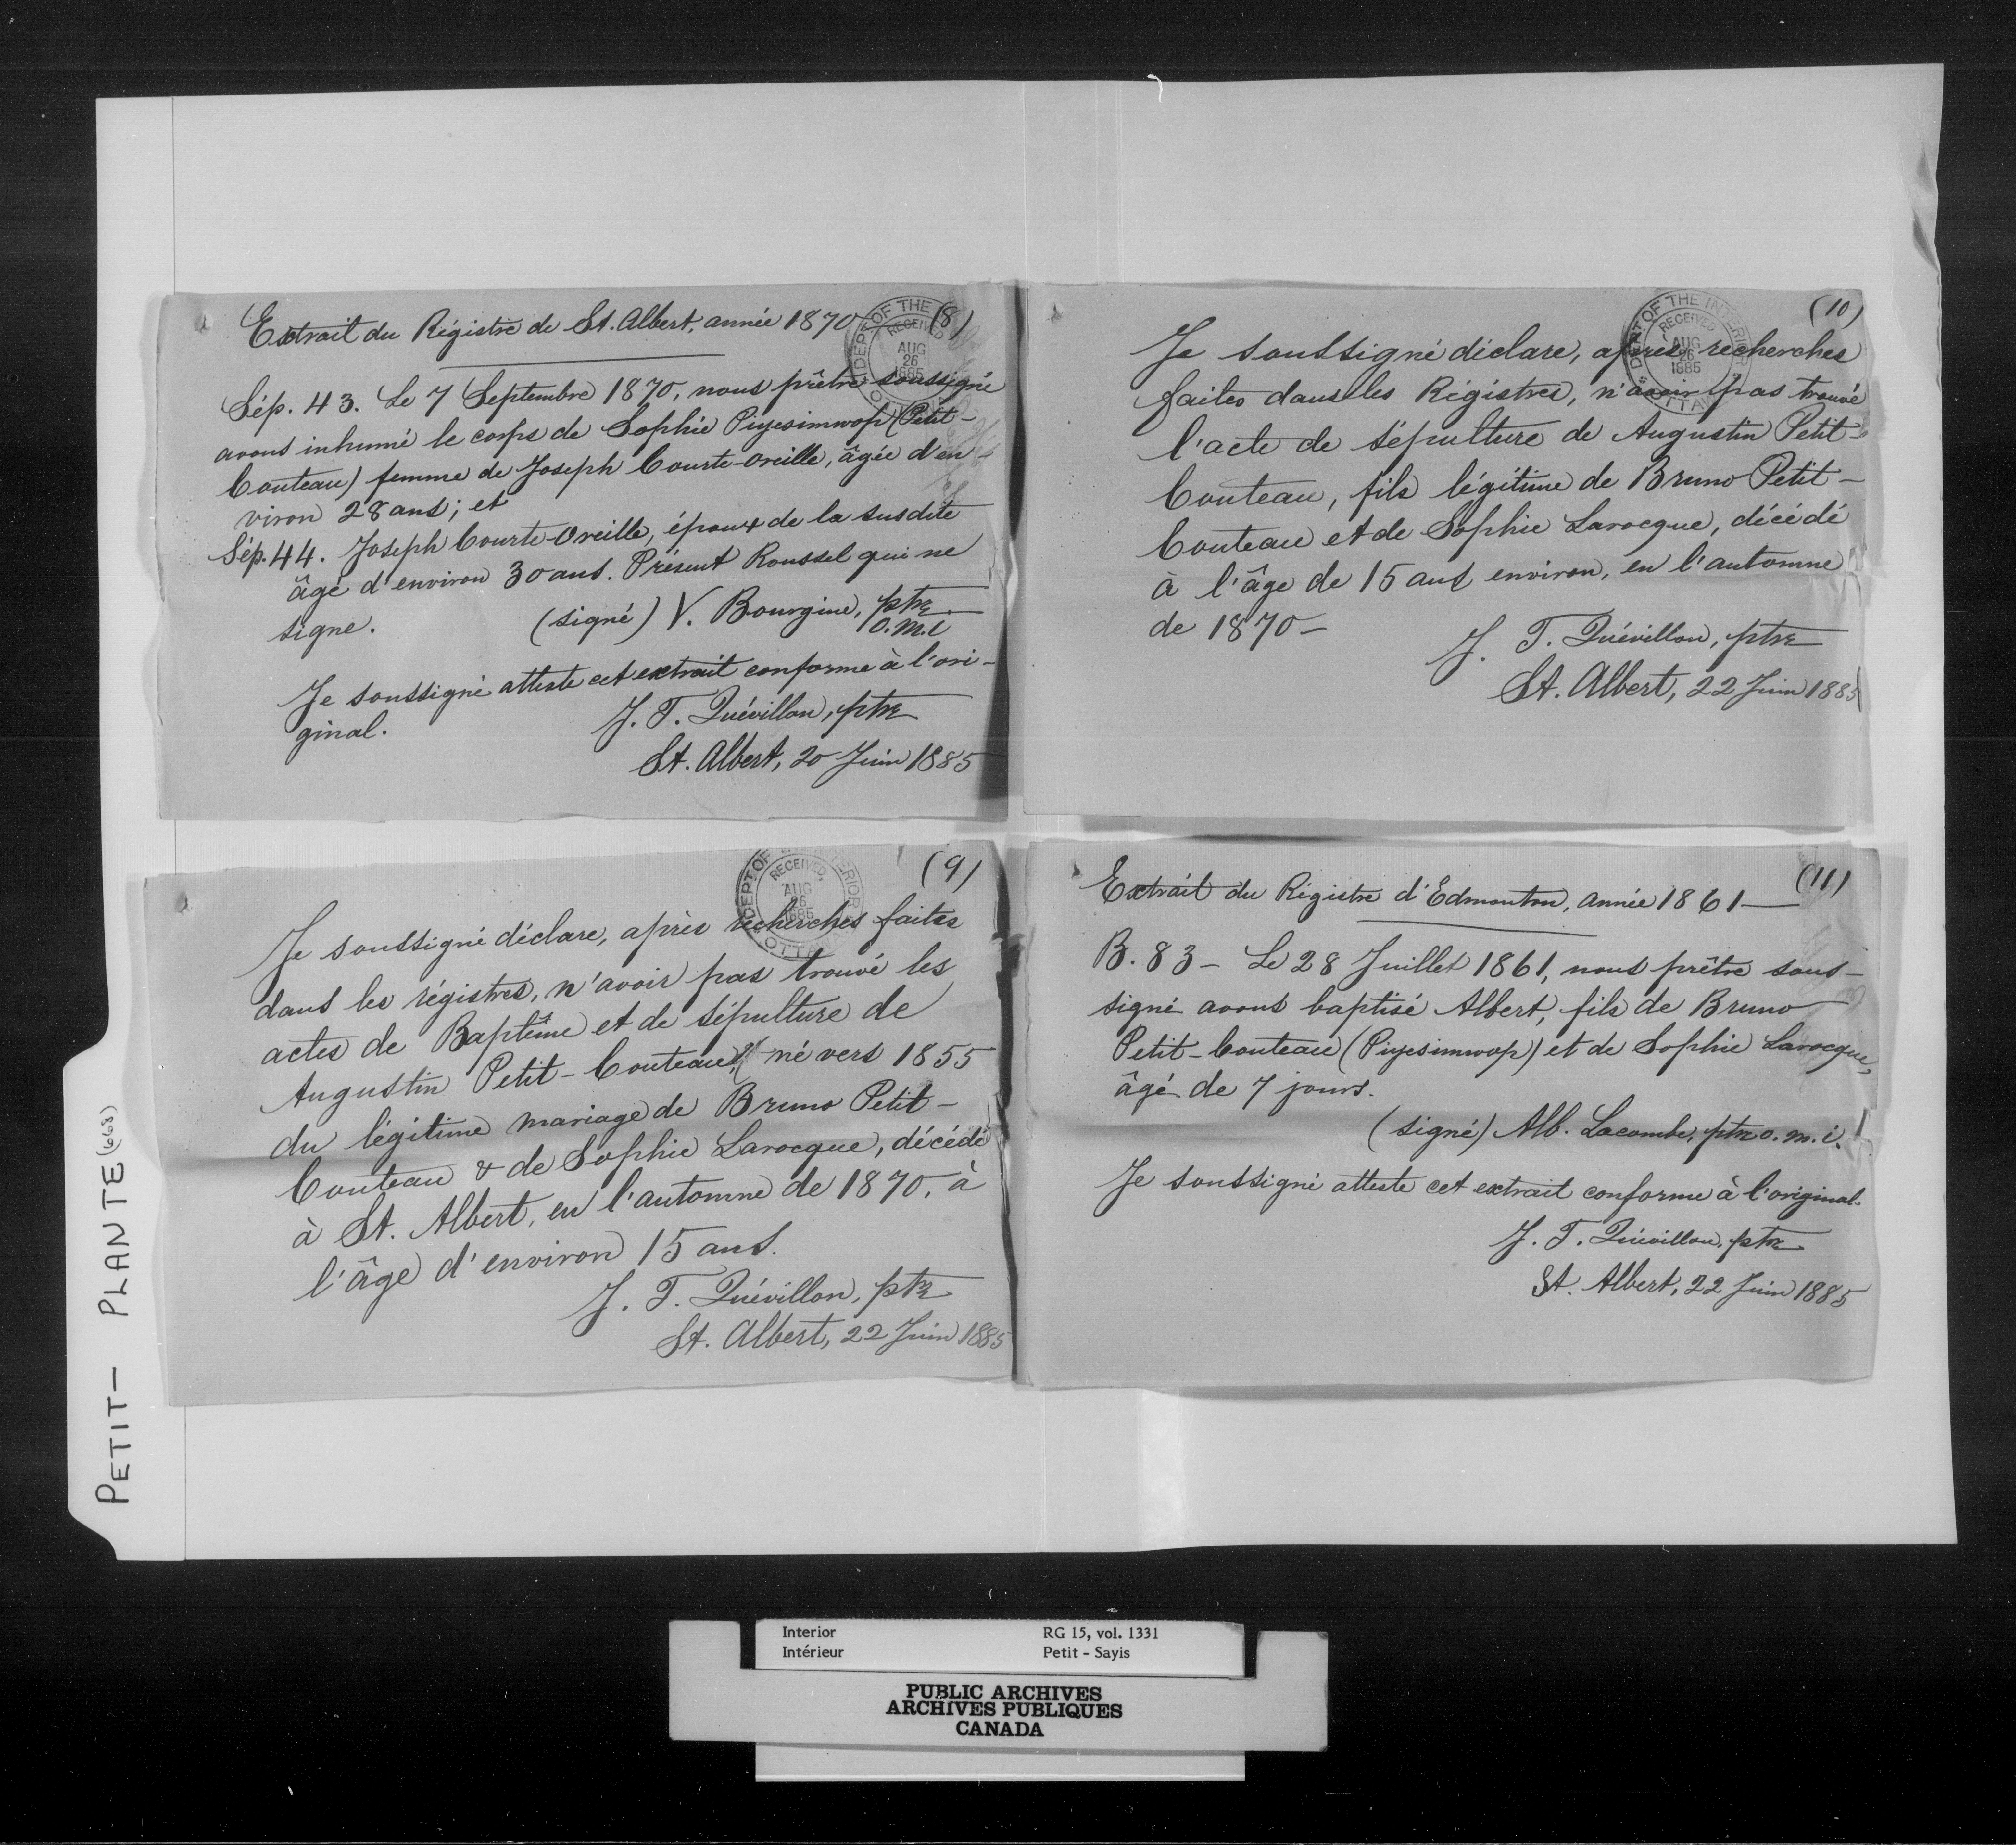 Extrait du Régistre de St. Albert, année 1870 (8)
Sép. 43. Le 7 Septembre 1870, nous prêtre soussigné
avons inhumé le corps de Sophie Piyesimwop (Petit-
Couteau) femme de Joseph Courte-Oreille, âgée d'en-
viron 28 ans; et
Sép. 44. Joseph Courte-Oreille, époux de la susdite
âgé d'environ 30 ans. Présent Roussel qui ne
signe.
(signé) V. Bourgine, ptre
o.m.i
Je soussigné atteste cet extrait conforme à l'ori-
ginal.
J. T. Quévillon, ptre
St. Albert, 20 Juin 1885
DEPT. OF THE INTERIOR
RECEIVED
AUG
26
1885
OTTAWA
(9)
Je soussigné déclare, après recherches faites
dans les régistres, n'avoir pas trouvé les
actes de Baptême et de sépulture de
Augustin Petit-Couteau, né vers 1855
du légitime mariage de Bruno Petit-
Couteau & de Sophie Larocque, décédé
à St. Albert, en l'automne de 1870, à
l'âge d'environ 15 ans.
J. T. Quévillon, ptre
St. Albert, 22 Juin 1885
DEPT. OF THE INTERIOR
RECEIVED
AUG
26
1885
OTTAWA
(10)
Je soussigné déclare, après recherches
faites dans les Régistres, n'avoir pas trouvé
l'acte de sépulture de Augustin Petit-
Couteau, fils légitime de Bruno Petit-
Couteau et de Sophie Larocque, décédé
à l'âge de 15 ans environ, en l'automne
de 1870-
J. T. Quévillon, ptre
St. Albert, 22 Juin 1885
DEPT. OF THE INTERIOR
RECEIVED
AUG
26
1885
OTTAWA
(11)
Extrait du Régistre d'Edmonton, année 1861
B. 83 - Le 28 Juillet 1861, nous prêtre sous-
signé avons baptisé Albert, fils de Bruno
Petit-Couteau (Piyesimwop) et de Sophie Larocque,
âgé de 7 jours.
(signé) Alb. Lacombe, ptre o.m.i.
Je soussigné atteste cet extrait conforme à l'original.
J. T. Quévillon, ptre
St. Albert, 22 Juin 1885
PETIT - PLANTE (668)
Interior RG 15, vol. 1331
Intérieur Petit - Sayis
PUBLIC ARCHIVES
ARCHIVES PUBLIQUES
CANADA